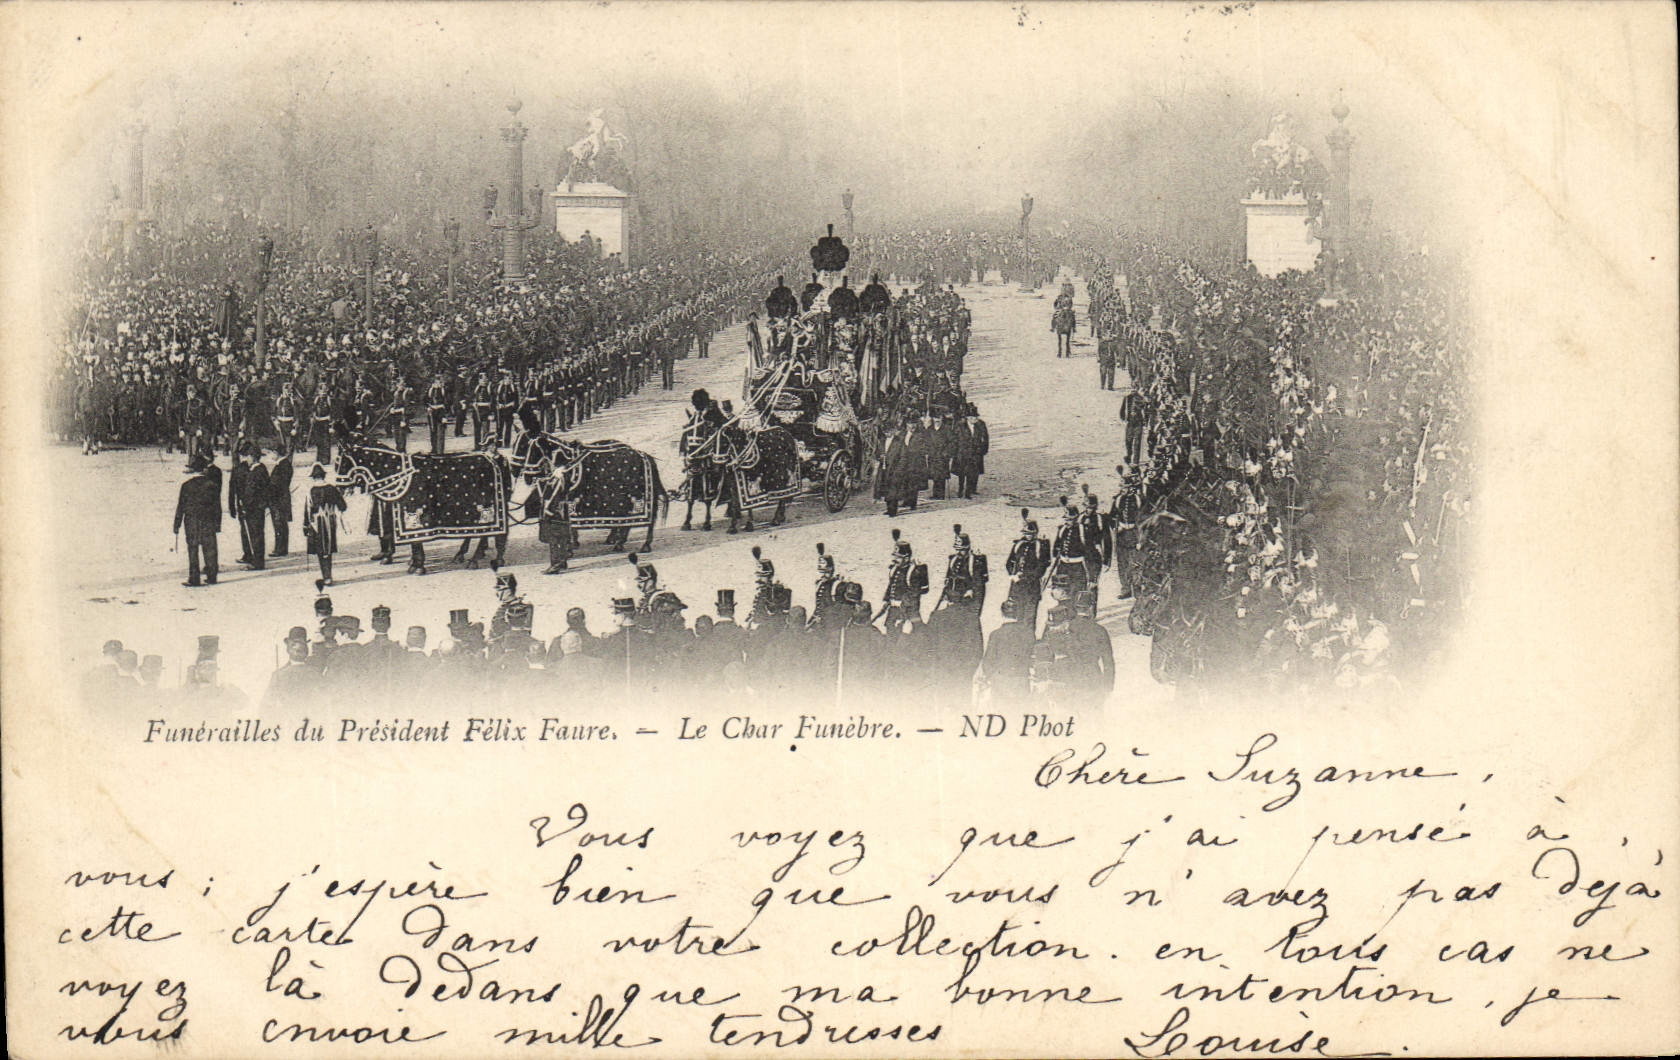 Funérailles du Président Félix Faure. — Le Char Funèbre. — ND Phot
Chère Suzanne,
Vous voyez que j'ai pensé à
vous ; j'espère bien que vous n'avez pas déjà
cette carte dans votre collection. en tous cas ne
voyez là dedans que ma bonne intention, je
vous envoie mille tendresses
Louise.